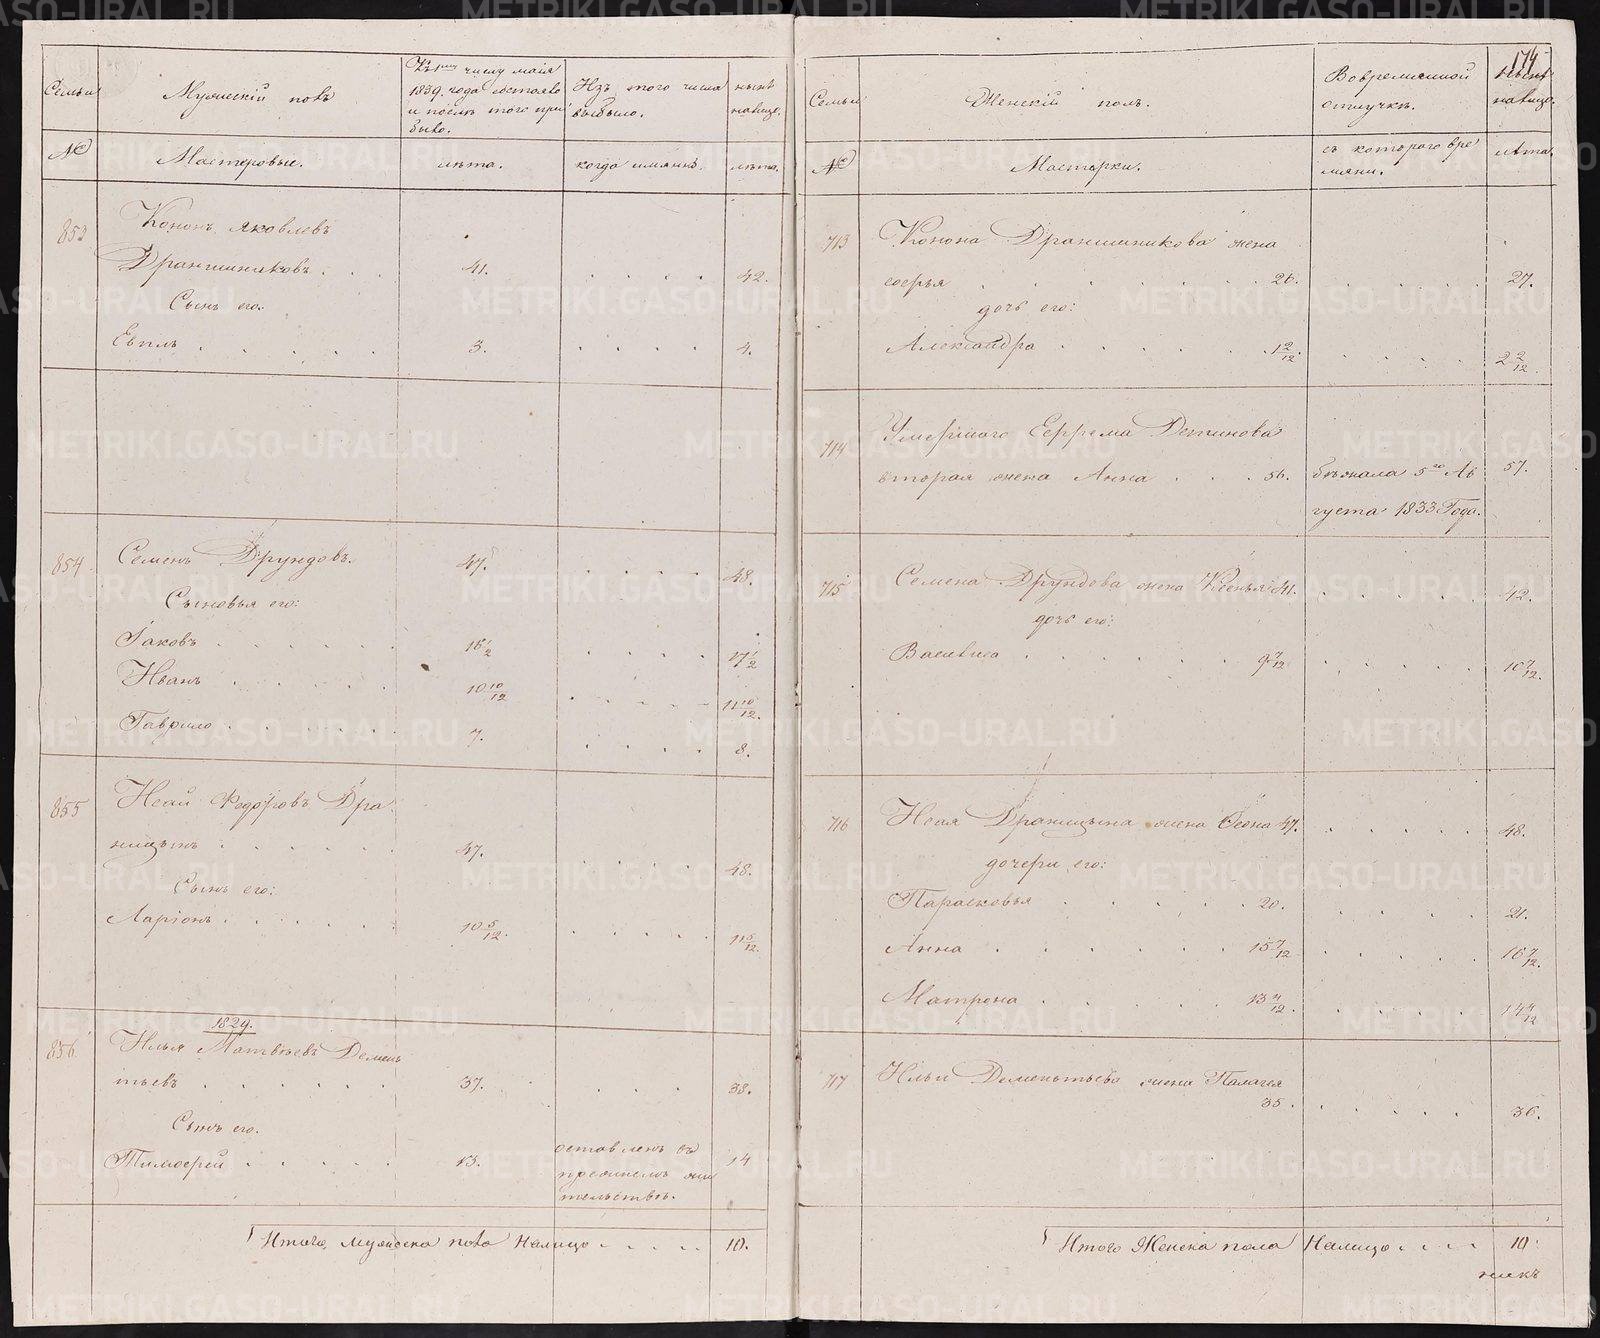 174
Семьи
Мужескій полъ
Къ 1му числу майя
1839. года состояло
и послѣ того при
было.
Изъ этого числа
выбыло.
нынѣ
налицо.
№
Мастеровые.
лѣта.
когда имянно.
лѣта.
853
Кононъ Яковлевъ
Дранишниковъ . . . 41. . . . . 42.
Сынъ его.
Евплъ . . . . . 3. . . . . 4.
854
Семенъ Друндовъ. 47. . . . . 48.
Сыновья его:
Іаковъ . . . . . . 16 1/2 . . . . 17 1/2
Иванъ . . . . . 10 10/12 . . . . 11 10/12.
Гаврило . . . . . 7. . . . . 8.
855
Исай Федоровъ Дра
ницынъ . . . . . . 47. . . . . 48.
Сынъ его:
Ларіонъ . . . . . 10 5/12. . . . . 11 5/12.
856
1829.
Илья Матвѣевъ Демен
тьевъ . . . . . . 37. . . . 38.
Сынъ его.
Тимофей . . . . . 13. оставленъ въ 14
прежнемъ жи
тельствѣ.
Итого мужеска пола Налицо . . . . . 10.
Семьи
Женскій полъ.
Вовремянной
отлучкѣ.
нынѣ
налицо.
№
Мастерки.
съ котораго вре
мяни.
лѣта.
713
Конона Дранишникова жена
софья . . . . . . . 26. . . . . . 27.
дочь его:
Александра . . . . . 1 2/12. . . . . 2 2/12.
714
Умершаго Ефрема Детинова
вторая жена Анна . . . 56. бѣжала 5го Ав 57.
густа 1833 Года.
715
Семена Друндова жена Ксенья 41. . . . . . 42.
дочь его:
Василиса . . . . . . 9 7/12 . . . . . 10 7/12.
716
Исая Драницына жена Феона 47. . . . . . 48.
дочери его:
Парасковья . . . . . 20. . . . . 21.
Анна . . . . . . 15 7/12 . . . . . 16 7/12.
Матрена . . . . . 13 4/12. . . . . 14 4/12
717
Ильи Дементьева жена Палагея
35. . . . . . 36.
Итого Женска пола Налицо . . . . 10.